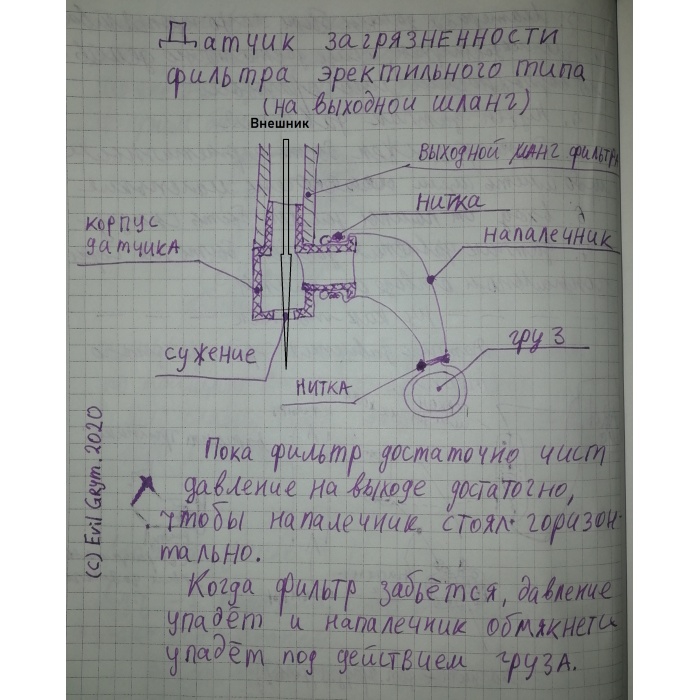 Датчик загрязненности
фильтра эректильного типа
(на выходной шланг)
Внешник
выходной шланг фильтра
нитка
корпус
датчика
напалечник
груз
сужение
нитка
Пока фильтр достаточно чист
давление на выходе достаточно,
чтобы напалечник стоял горизон-
тально.
Когда фильтр забьётся, давление
упадёт и напалечник обмякнет и
упадёт под действием груза.
(c) Evil Grym. 2020